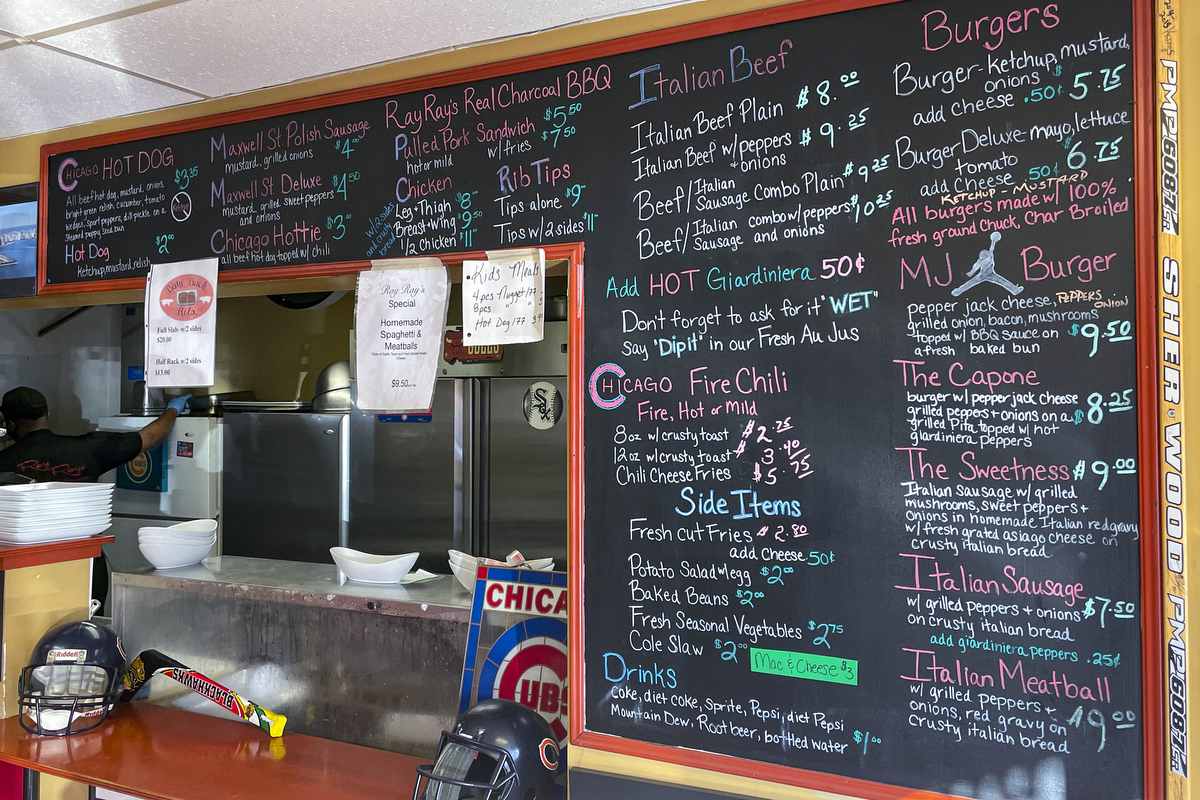 CHICAGO HOT DOG
All beef hot dog, mustard, onions $3.35
bright green relish, cucumber, tomato
wedges, sport peppers, dill pickle on a
steamed poppy seed bun
Hot Dog $2.00
Ketchup, mustard, relish
Maxwell St Polish Sausage
mustard, grilled onions $4.00
Maxwell St Deluxe $4.50
mustard, grilled sweet peppers
and onions
Chicago Hottie $3.00
all beef hot dog, topped w/ chili
RayRay's Real Charcoal BBQ
Pulled Pork Sandwich $5.50
hot or mild w/ fries $7.50
Chicken
w/2 sides
and crusty
bread
Leg + Thigh 8
Breast + Wing 9.50
1/2 Chicken "11"
Rib Tips
Tips alone $9
Tips w/ 2 sides "11"
Italian Beef
Italian Beef Plain $8.00
Italian Beef w/peppers $9.25
+ onions
Beef/ Italian
Sausage Combo Plain $9.25
Beef/ Italian combo w/peppers $10.25
Sausage and onions
Add HOT Giardiniera 50¢
Don't forget to ask for it "WET"
say "Dip it" in our Fresh Au Jus
CHICAGO Fire Chili
Fire, Hot or Mild
8oz w/ crusty toast $2.25
12oz w/ crusty toast $3.40
Chili Cheese Fries $5.75
Side Items
Fresh cut Fries $2.80
add cheese .50¢
Potato Salad w/egg $2.00
Baked Beans $2.00
Fresh Seasonal Vegetables $2.75
Cole Slaw $2.00
Mac & Cheese $3
Drinks
Coke, diet coke, sprite, Pepsi, diet Pepsi
Mountain Dew, Root beer, bottled water $1.00
Burgers
Burger - ketchup, mustard,
onions 5.75
add cheese .50¢
Burger Deluxe - mayo, lettuce
tomato 6.75
add cheese .50¢
KETCHUP - MUSTARD
All burgers made w/ 100%
fresh ground Chuck, Char Broiled
MJ Burger
pepper jack cheese, PEPPERS
ONION
grilled onion, bacon, mushrooms
topped w/ BBQ Sauce on $9.50
a fresh baked bun
The Capone
burger w/ pepper jack cheese
grilled peppers + onions on a $8.25
grilled Pita, topped w/ hot
giardiniera peppers
The Sweetness $9.00
Italian Sausage w/ grilled
mushrooms, sweet peppers +
onions in homemade Italian red gravy
w/ fresh grated asiago cheese on
crusty italian bread
Italian Sausage
w/ grilled peppers + onions $7.50
on crusty italian bread
add giardiniera peppers .25¢
Italian Meatball
w/ grilled peppers +
onions, red gravy on
crusty italian bread
Baby Back
Ribs
Full Slab- w/2 sides
$20.00
Half Rack w/2 sides
$13.00
Ray Ray's
Special
Homemade
Spaghetti &
Meatballs
$9.50
Kids Meals
4 pcs Nugget/??
8pcs
Hot Dog/??
Sox
Ray Ray's
Riddell
Riddell
BLACKHAWKS
CHICA
CUBS
PMP2608Z
SHER-WOOD
PMP2608Z